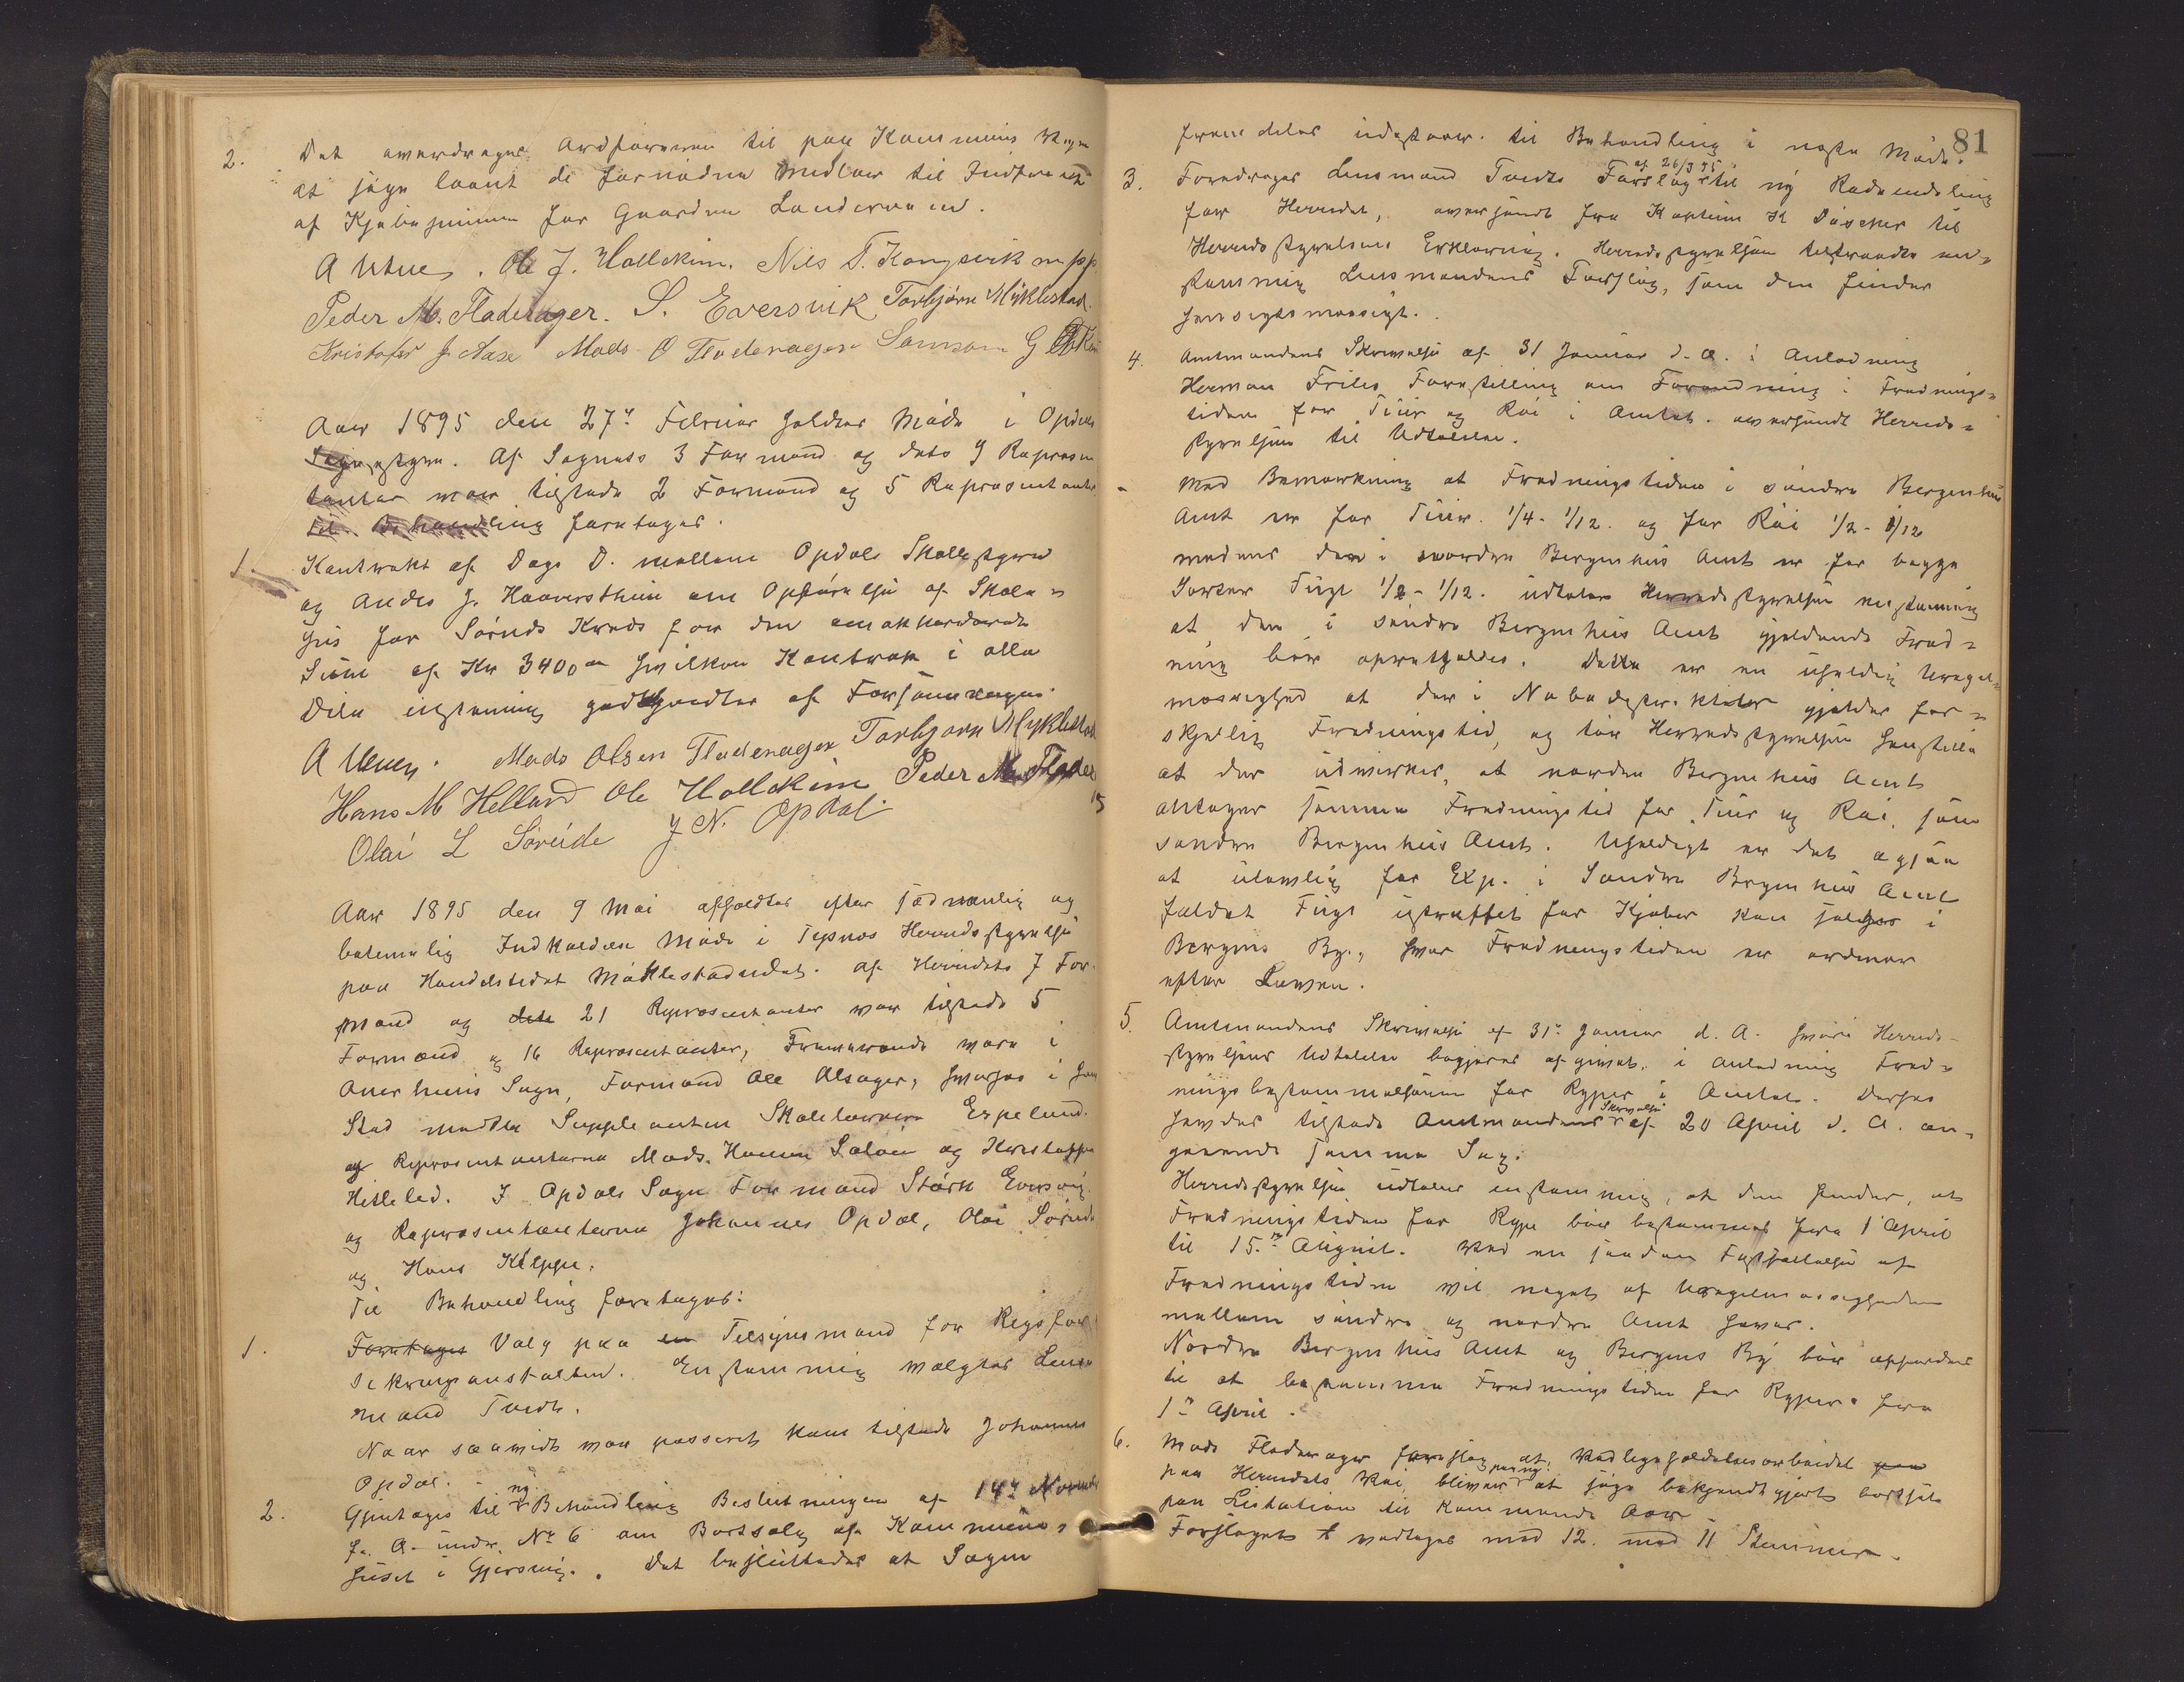 2. Det overdrages Ordføreren til paa Kommunens Vegne
at søge laant de fornødne Midler til Indfrielse
af Kjøbesummen for Gaarden Landervaad.
A Utne. Ole J. Hallekim. Nils T. Kongsvik m p p
Peder M. Fladerager. S. Eversvik Torbjørn Myklestad.
Kristofer J Aase Mads O Fladerager Samson G
Aar 1895 den 27de Februar holdtes Møde i Opdals
Sognestyre. Af Sognets 3 Formænd og dets 9 Repræsen
tanter var tilstede 2 Formænd og 5 Repræsentanter
Til Behandling foretages.
1. Kontrakt af Dags D. mellem Opdals Skolestyre
og Anders J. Haaversthun om Opførelse af Skole=
hus for Søreids Kreds for den omakkorderede
Sum af Kr 3400 hvilken Kontrakt i alle
Dele enstemmig godkjendtes af Forsamlingen.
A Utne. Mads Olsen Fladerager Torbjørn Myklestad
Hans M Helland Ole Hallekim Peder M. Flader
Olai L Søreide J N. Opdal
Aar 1895 den 9 Mai afholdtes efter sædvanlig og
betimelig Indkaldelse Møde i Tysnes Herredsstyrelse
paa Handelsstedet Møklestadeidet. Af Herredets 7 For
mænd og dets 21 Repræsentanter var tilstede 5
Formænd og 16 Repræsentanter, Fraværende vare i
Onarheims Sogn, Formand Ole Alsager, hvorfor i hans
Sted mødte Suppleanten Skolelærer Espelund.
og Repræsentanterne Mads Hansen Saloie og Kristoffer
Hilleled. I Opdals Sogn Formand Størk Eversvig
og Repræsentanterne Johannes Opdal, Olai Søreide
og Hans Kleppe.
Til Behandling foretages:
1. Foretages Valg paa en Tilsynsmand for Rigsfor
sikringsanstalten. Enstemmig valgtes Lens
mand Tvedt.
Naar saavidt var passeret kom tilstede Johannes
Opdal.
2. Gjentages til ny Behandling Beslutningen af 14de November
f. A. under No 6 om Bortsalg af Kommune=
huset i Gjersvig. Det besluttedes at Sagen
81
fremdeles udestaar til Behandling i næste Møde.
3. Foredrages Lensmand Tvedts Forslag af 26/3 95 til ny Rodeinddeling
for Herredet, oversendt fra Kaptein K Døscher til
Herredsstyrelsens Erklæring. Herredsstyrelsen tiltraadte en=
stemmig Lensmandens Forslag, som den finder
hensigtsmæssigt.
4. Amtmandens Skrivelse af 31 Januar d. A. i Anledning
Herman Friles Forestilling om Forandring i Frednings=
tiden for Tiur og Røi i Amtet. oversendt Herreds=
styrelsen til Udtalelse.
- Med Bemærkning at Fredningstiden i søndre Bergenhus
Amt er for Tiur. 1/4 - 1/12. og for Røi 1/2 - 1/12
medens den i nordre Bergenhus Amt er for begge
Sorter Fugl 1/2 - 1/12. udtaler Herredsstyrelsen enstemmig
at den i Søndre Bergenhus Amt gjeldende Fred=
ning bør opretholdes. Dette er en uheldig Uregel=
mæssighed at der i Nabodistrikter gjelder for=
skjellig Fredningstid, og tør Herredsstyrelsen henstille
at der udvirkes, at nordre Bergenhus Amt
antager samme Fredningstid for Tiur og Røi, som
søndre Bergenhus Amt. Uheldigt er det ogsaa
at ulovlig for Exp. i Søndre Bergenhus Amt
fældet Fugl ustraffet for Kjøber kan sælges i
Bergens By, hvor Fredningstiden er ordnet
efter Loven.
5. Amtmandens Skrivelse af 31te Januar d. A. hvori Herreds-
styrelsens Udtalelse begjæres afgivet, i Anledning Fred=
ningsbestemmelserne for Ryper i Amtet. Derhos
havdes tilstede Amtmandens Skrivelse af 20 April d. A. an=
gaaende samme Sag.
Herredsstyrelsen udtaler enstemmig, at den finder, at
Fredningstiden for Rype bør bestemmes fra 1 April
til 15de August. Ved en saadan Fastsættelse af
Fredningstiden vil noget af Uregelmæssigheden
mellem søndre og nordre Amt hæves.
Nordre Bergenhus Amt og Bergens By bør opfordres
til at bestemme Fredningstiden for Ryper fra
1ste April.
6. Mads Fladerager foreslog at Vedligeholdelsesarbeidet paa
paa Herredets Veie bliver paa ny at søge bekjendtgjort bortsat
paa Lisitation til kommende Aar
Forslaget vedtages med 12 mod 11 Stemmer.